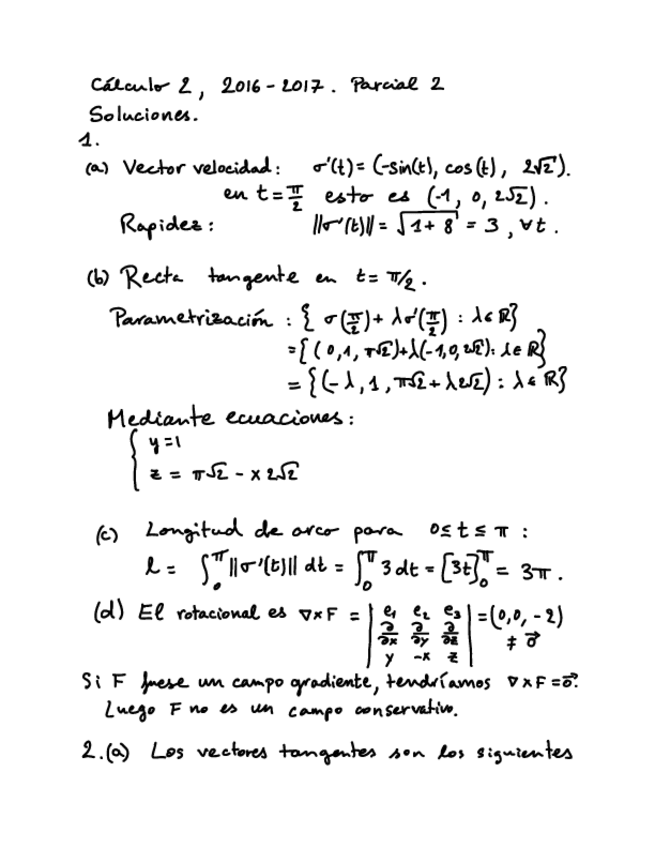 Cálculo 2, 2016-2017. Parcial 2
Soluciones.
1.
(a) Vector velocidad: σ'(t) = (-sin(t), cos(t), 2√2).
en t = π/2 esto es (-1, 0, 2√2).
Rapidez: ||σ'(t)|| = √(1+8) = 3, ∀t.
(b) Recta tangente en t = π/2.
Parametrización: { σ(π/2) + λσ'(π/2) : λ ∈ ℝ}
= {(0,1, π√2)+λ(-1,0,2√2): λ ∈ ℝ}
= {(-λ, 1, π√2 + λ2√2) : λ ∈ ℝ}
Mediante ecuaciones:
{ y = 1
z = π√2 - x2√2
(c) Longitud de arco para 0 ≤ t ≤ π :
l = ∫₀^π ||σ'(t)|| dt = ∫₀^π 3 dt = [3t]₀^π = 3π.
(d) El rotacional es ∇×F = | e₁ e₂ e₃ | = (0,0,-2)
∂/∂x ∂/∂y ∂/∂z ≠ 0⃗
y -x z
Si F fuese un campo gradiente, tendríamos ∇×F = 0⃗.
Luego F no es un campo conservativo.
2.(a) Los vectores tangentes son los siguientes